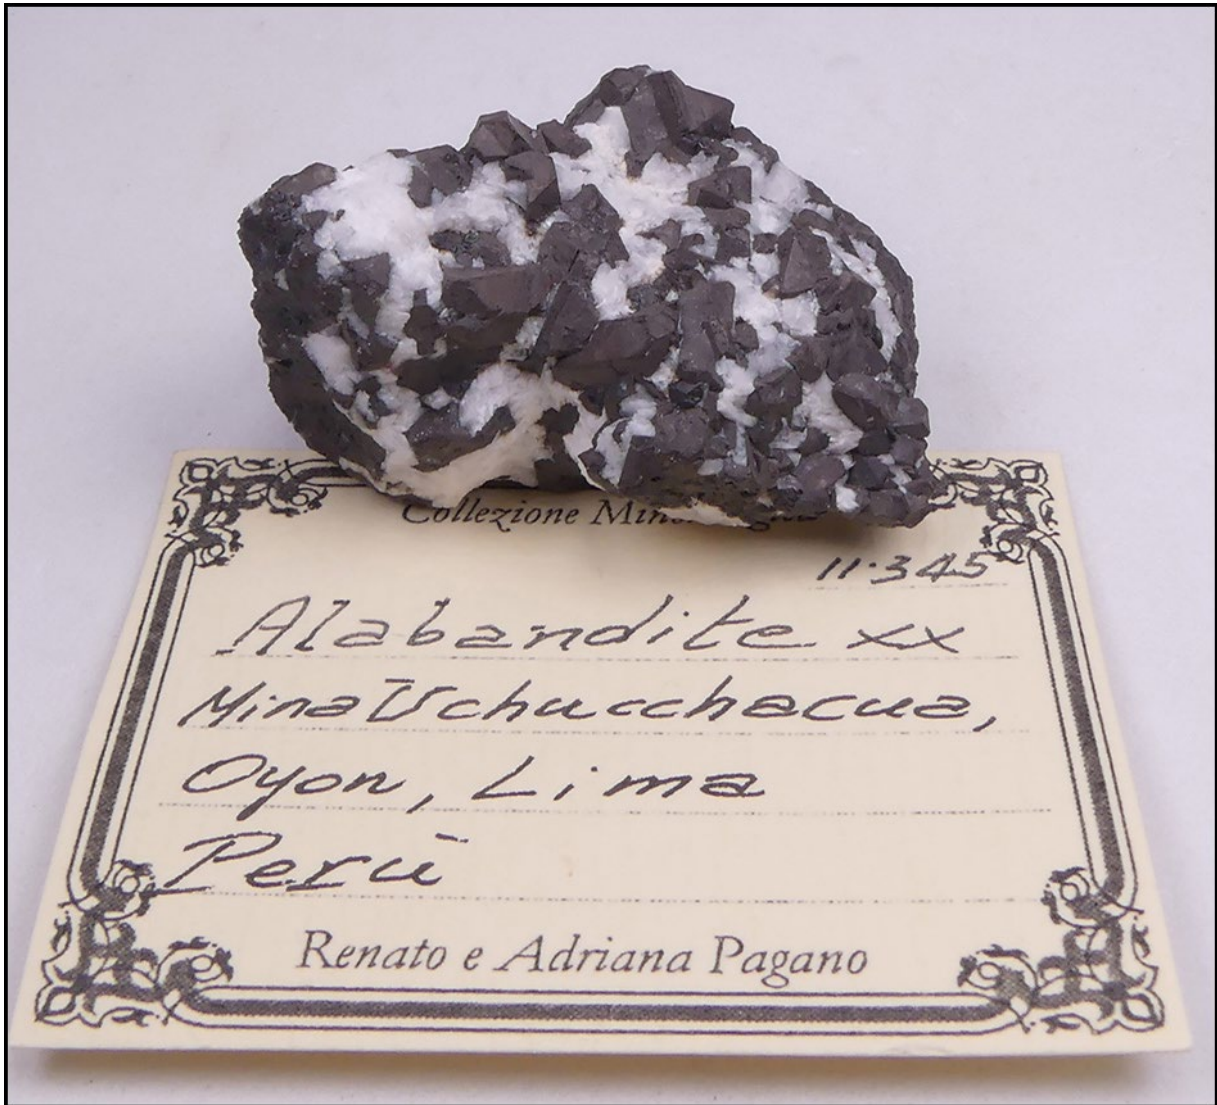 Collezione
11.345
Alabandite xx
Mina Uchucchacua,
Oyon, Lima
Perù
Renato e Adriana Pagano